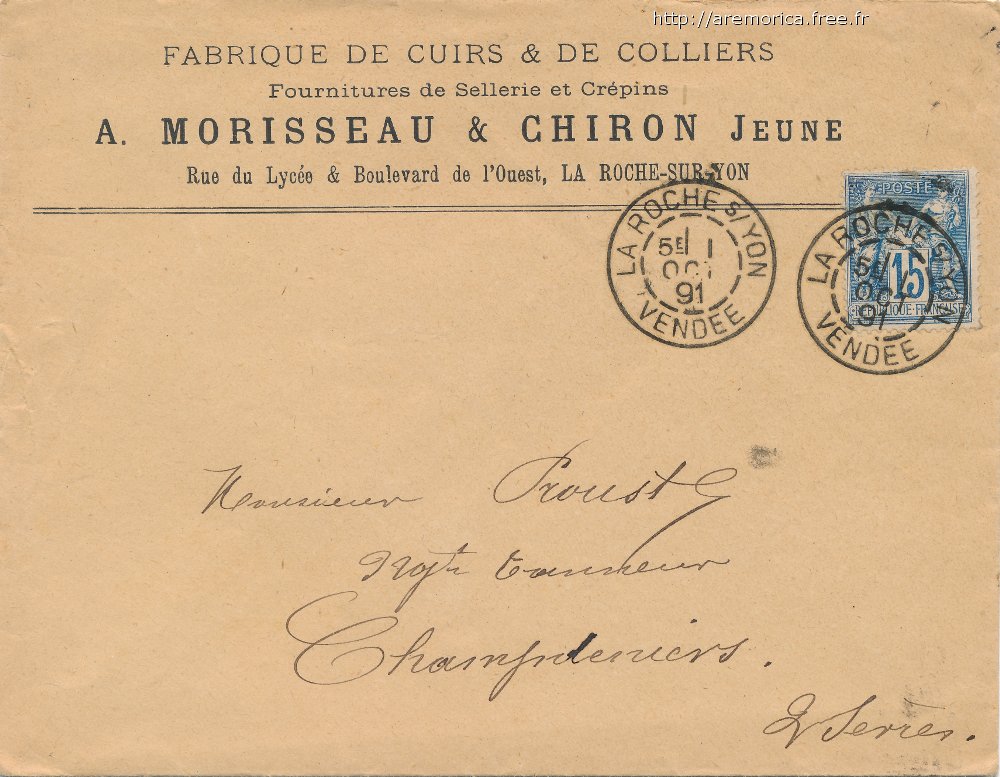 http://aremorica.free.fr
FABRIQUE DE CUIRS & DE COLLIERS
Fournitures de Sellerie et Crépins
A. MORISSEAU & CHIRON JEUNE
Rue du Lycée & Boulevard de l'Ouest, LA ROCHE-SUR-YON
LA ROCHE S/YON
5E 1
OCT
91
VENDEE
POSTE
15
REPUBLIQUE FRANCAISE
LA ROCHE S/YON
5E 1
OCT
91
VENDEE
Monsieur Proust
Ngt Tanneur
Champdeniers.
2 Sevres.